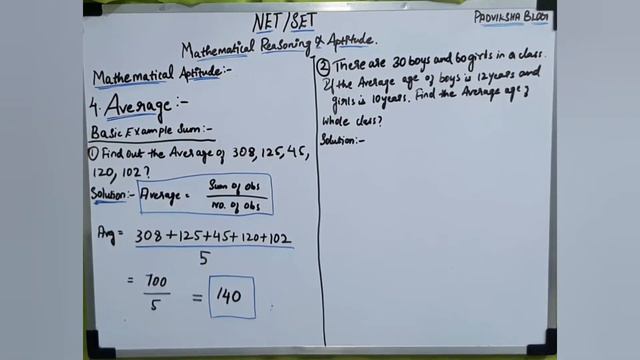 NET/SET
PADVIKSHA BLOG
Mathematical Reasoning & Aptitude.
Mathematical Aptitude:-
4. Average:-
Basic Example Sum:-
① Find out the Average of 308, 125, 45,
120, 102?
Solution:- Average = Sum of obs / No. of obs
Avg = 308+125+45+120+102 / 5
= 700 / 5 = 140
② There are 30 boys and 60 girls in a class.
If the Average age of boys is 12 years and
girls is 10 years. Find the Average age of
whole class?
Solution:-